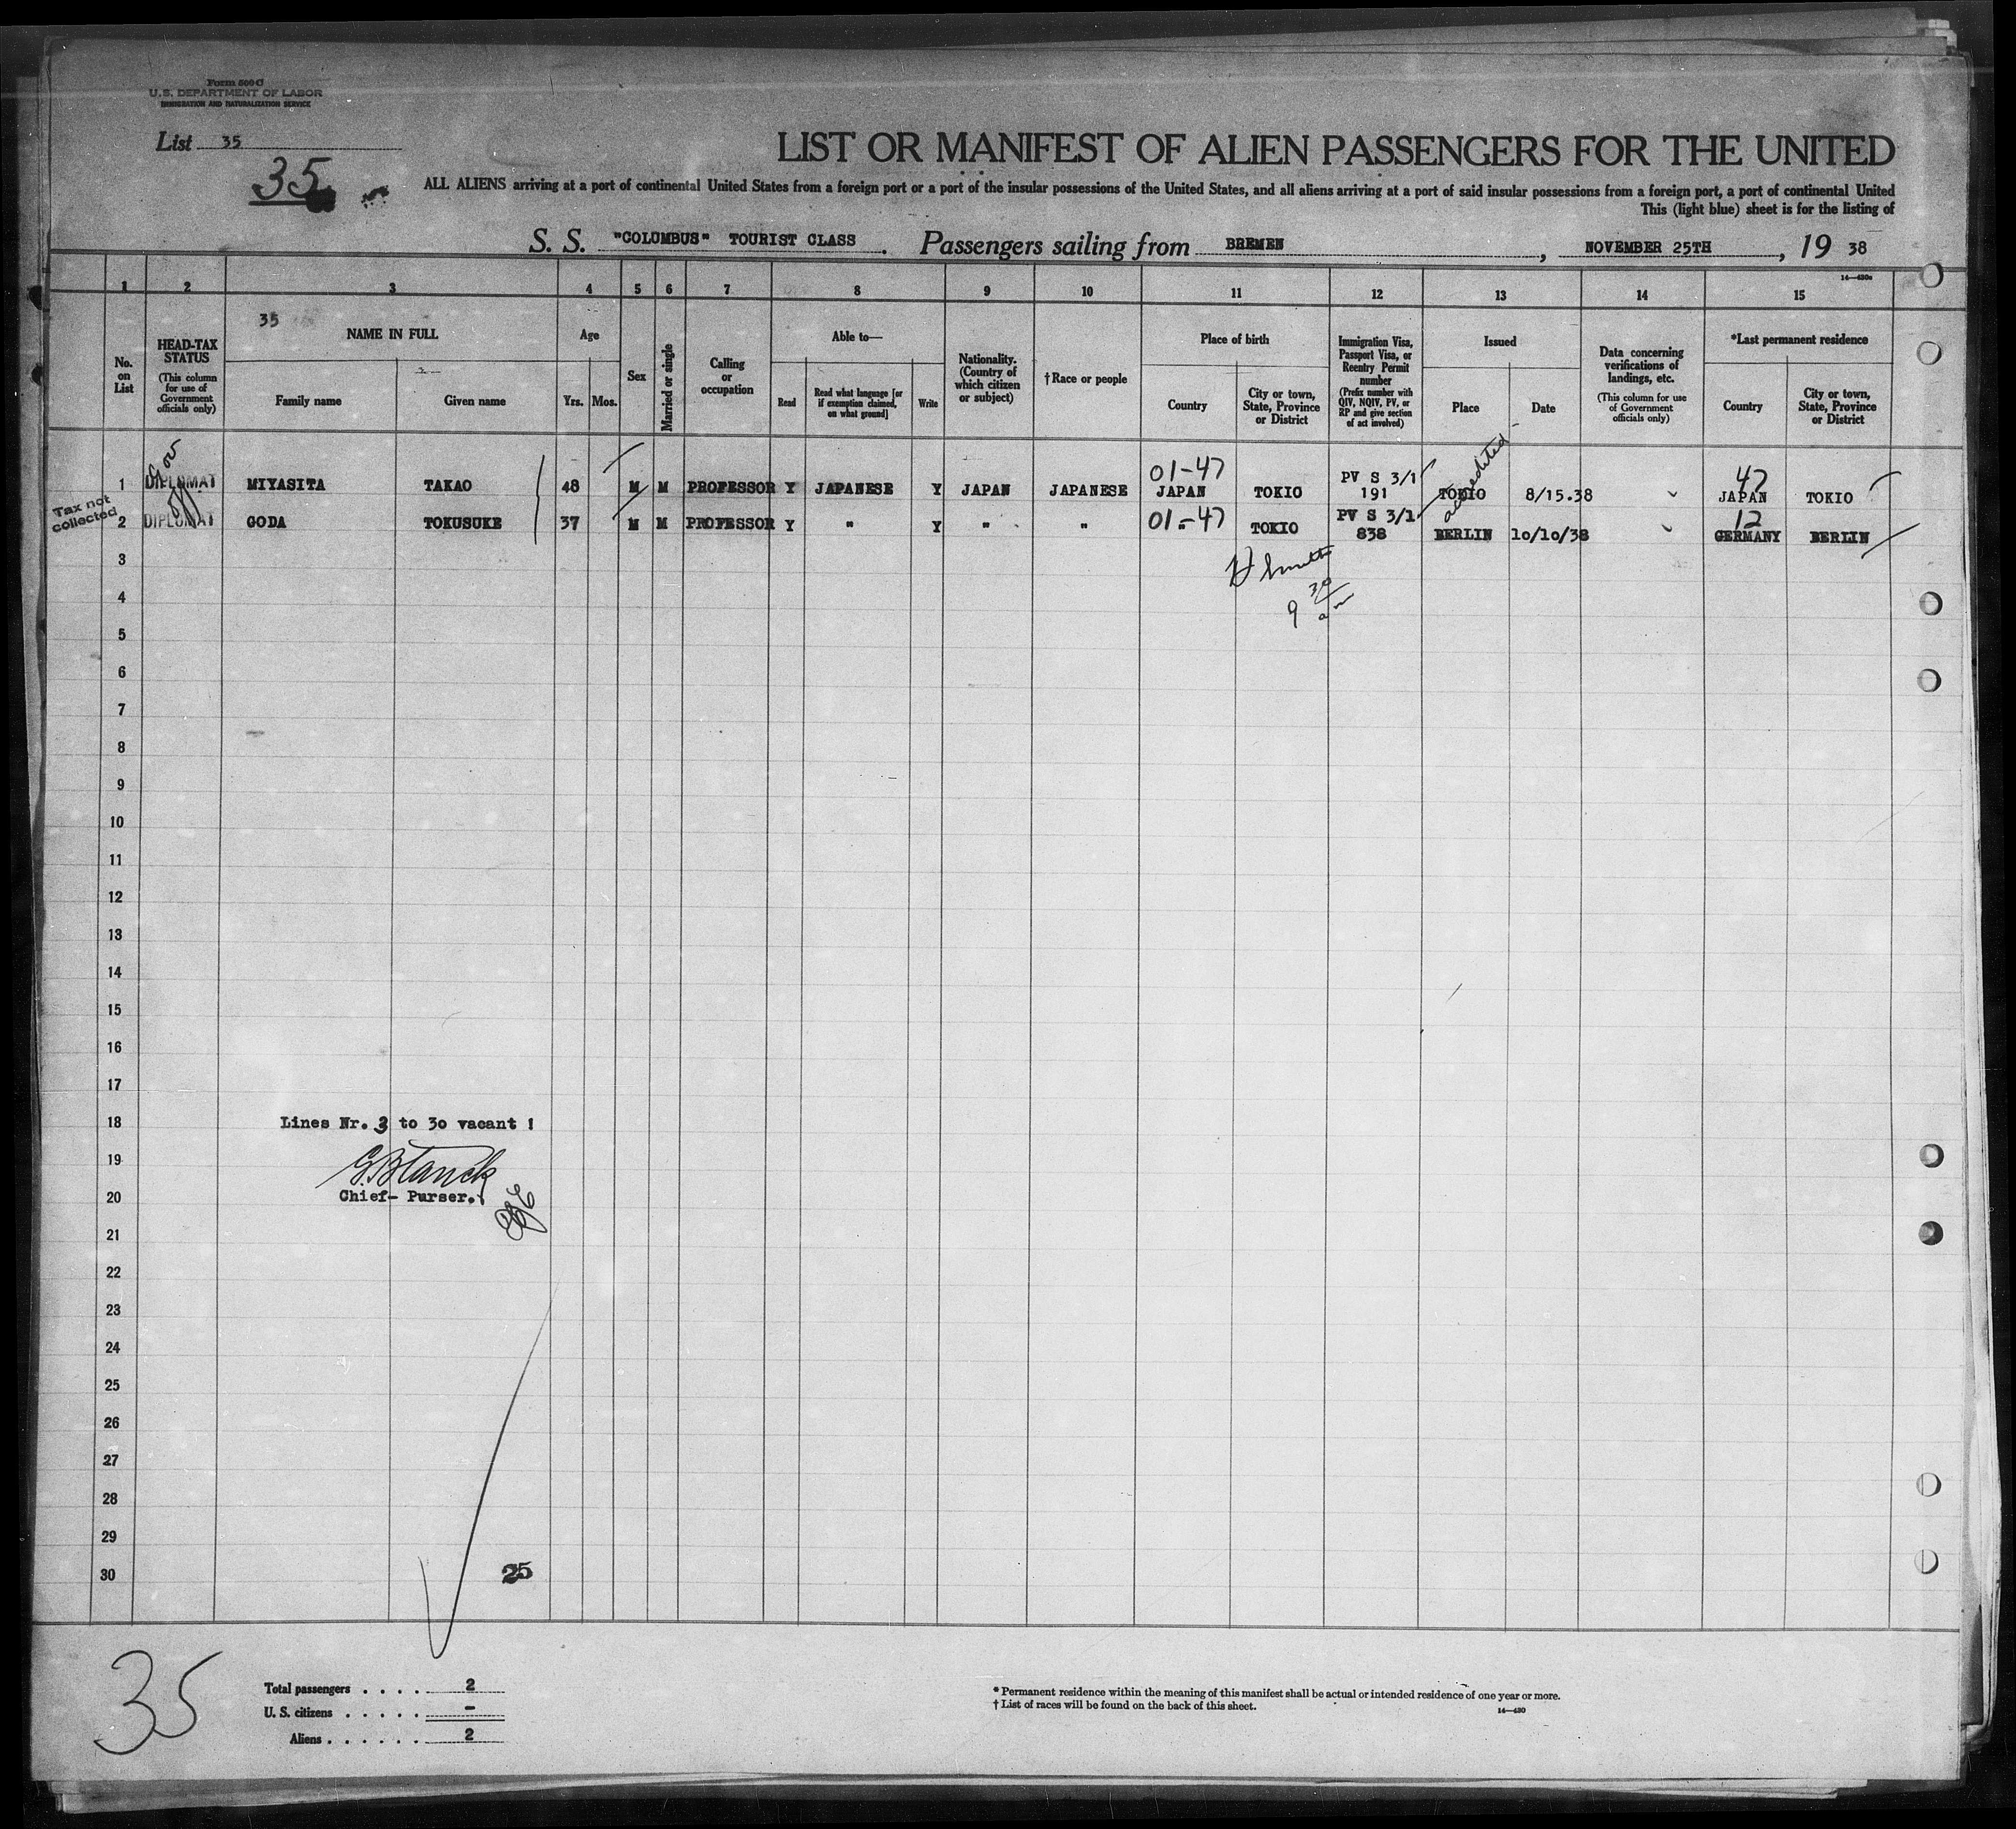 Form 500 G
U. S. DEPARTMENT OF LABOR
IMMIGRATION AND NATURALIZATION SERVICE
List 35
35
LIST OR MANIFEST OF ALIEN PASSENGERS FOR THE UNITED
ALL ALIENS arriving at a port of continental United States from a foreign port or a port of the insular possessions of the United States, and all aliens arriving at a port of said insular possessions from a foreign port, a port of continental United
This (light blue) sheet is for the listing of
S. S. "COLUMBUS" TOURIST CLASS. Passengers sailing from BREMEN, NOVEMBER 25TH, 19 38
14—430a
1 2 3 4 5 6 7 8 9 10 11 12 13 14 15
35
No. on List
HEAD-TAX STATUS (This column for use of Government officials only)
NAME IN FULL
Family name Given name
Age
Yrs. Mos.
Sex
Married or single
Calling or occupation
Able to—
Read Read what language [or if exemption claimed, on what ground] Write
Nationality. (Country of which citizen or subject)
†Race or people
Place of birth
Country City or town, State, Province or District
Immigration Visa, Passport Visa, or Reentry Permit number (Prefix number with QIV, NQIV, PV, or RP and give section of act involved)
Issued
Place Date
Data concerning verifications of landings, etc. (This column for use of Government officials only)
*Last permanent residence
Country City or town, State, Province or District
Gov
accredited
01-47 PV S 3/1 47
1 DIPLOMAT MIYASITA TAKAO 48 M M PROFESSOR Y JAPANESE Y JAPAN JAPANESE JAPAN TOKIO 191 TOKIO 8/15.38 JAPAN TOKIO
Tax not collected
01-47 PV S 3/1 12
2 DIPLOMAT GODA TOKUSUKE 37 M M PROFESSOR Y " Y " " " TOKIO 838 BERLIN 10/10/38 GERMANY BERLIN
3
4
9 30 am
5
6
7
8
9
10
11
12
13
14
15
16
17
18 Lines Nr. 3 to 30 vacant !
19
20 Chief- Purser.
21
22
23
24
25
26
27
28
29
30
25
35
Total passengers . . . . 2
U. S. citizens . . . . . —
Aliens . . . . . . 2
* Permanent residence within the meaning of this manifest shall be actual or intended residence of one year or more.
† List of races will be found on the back of this sheet.
14—430